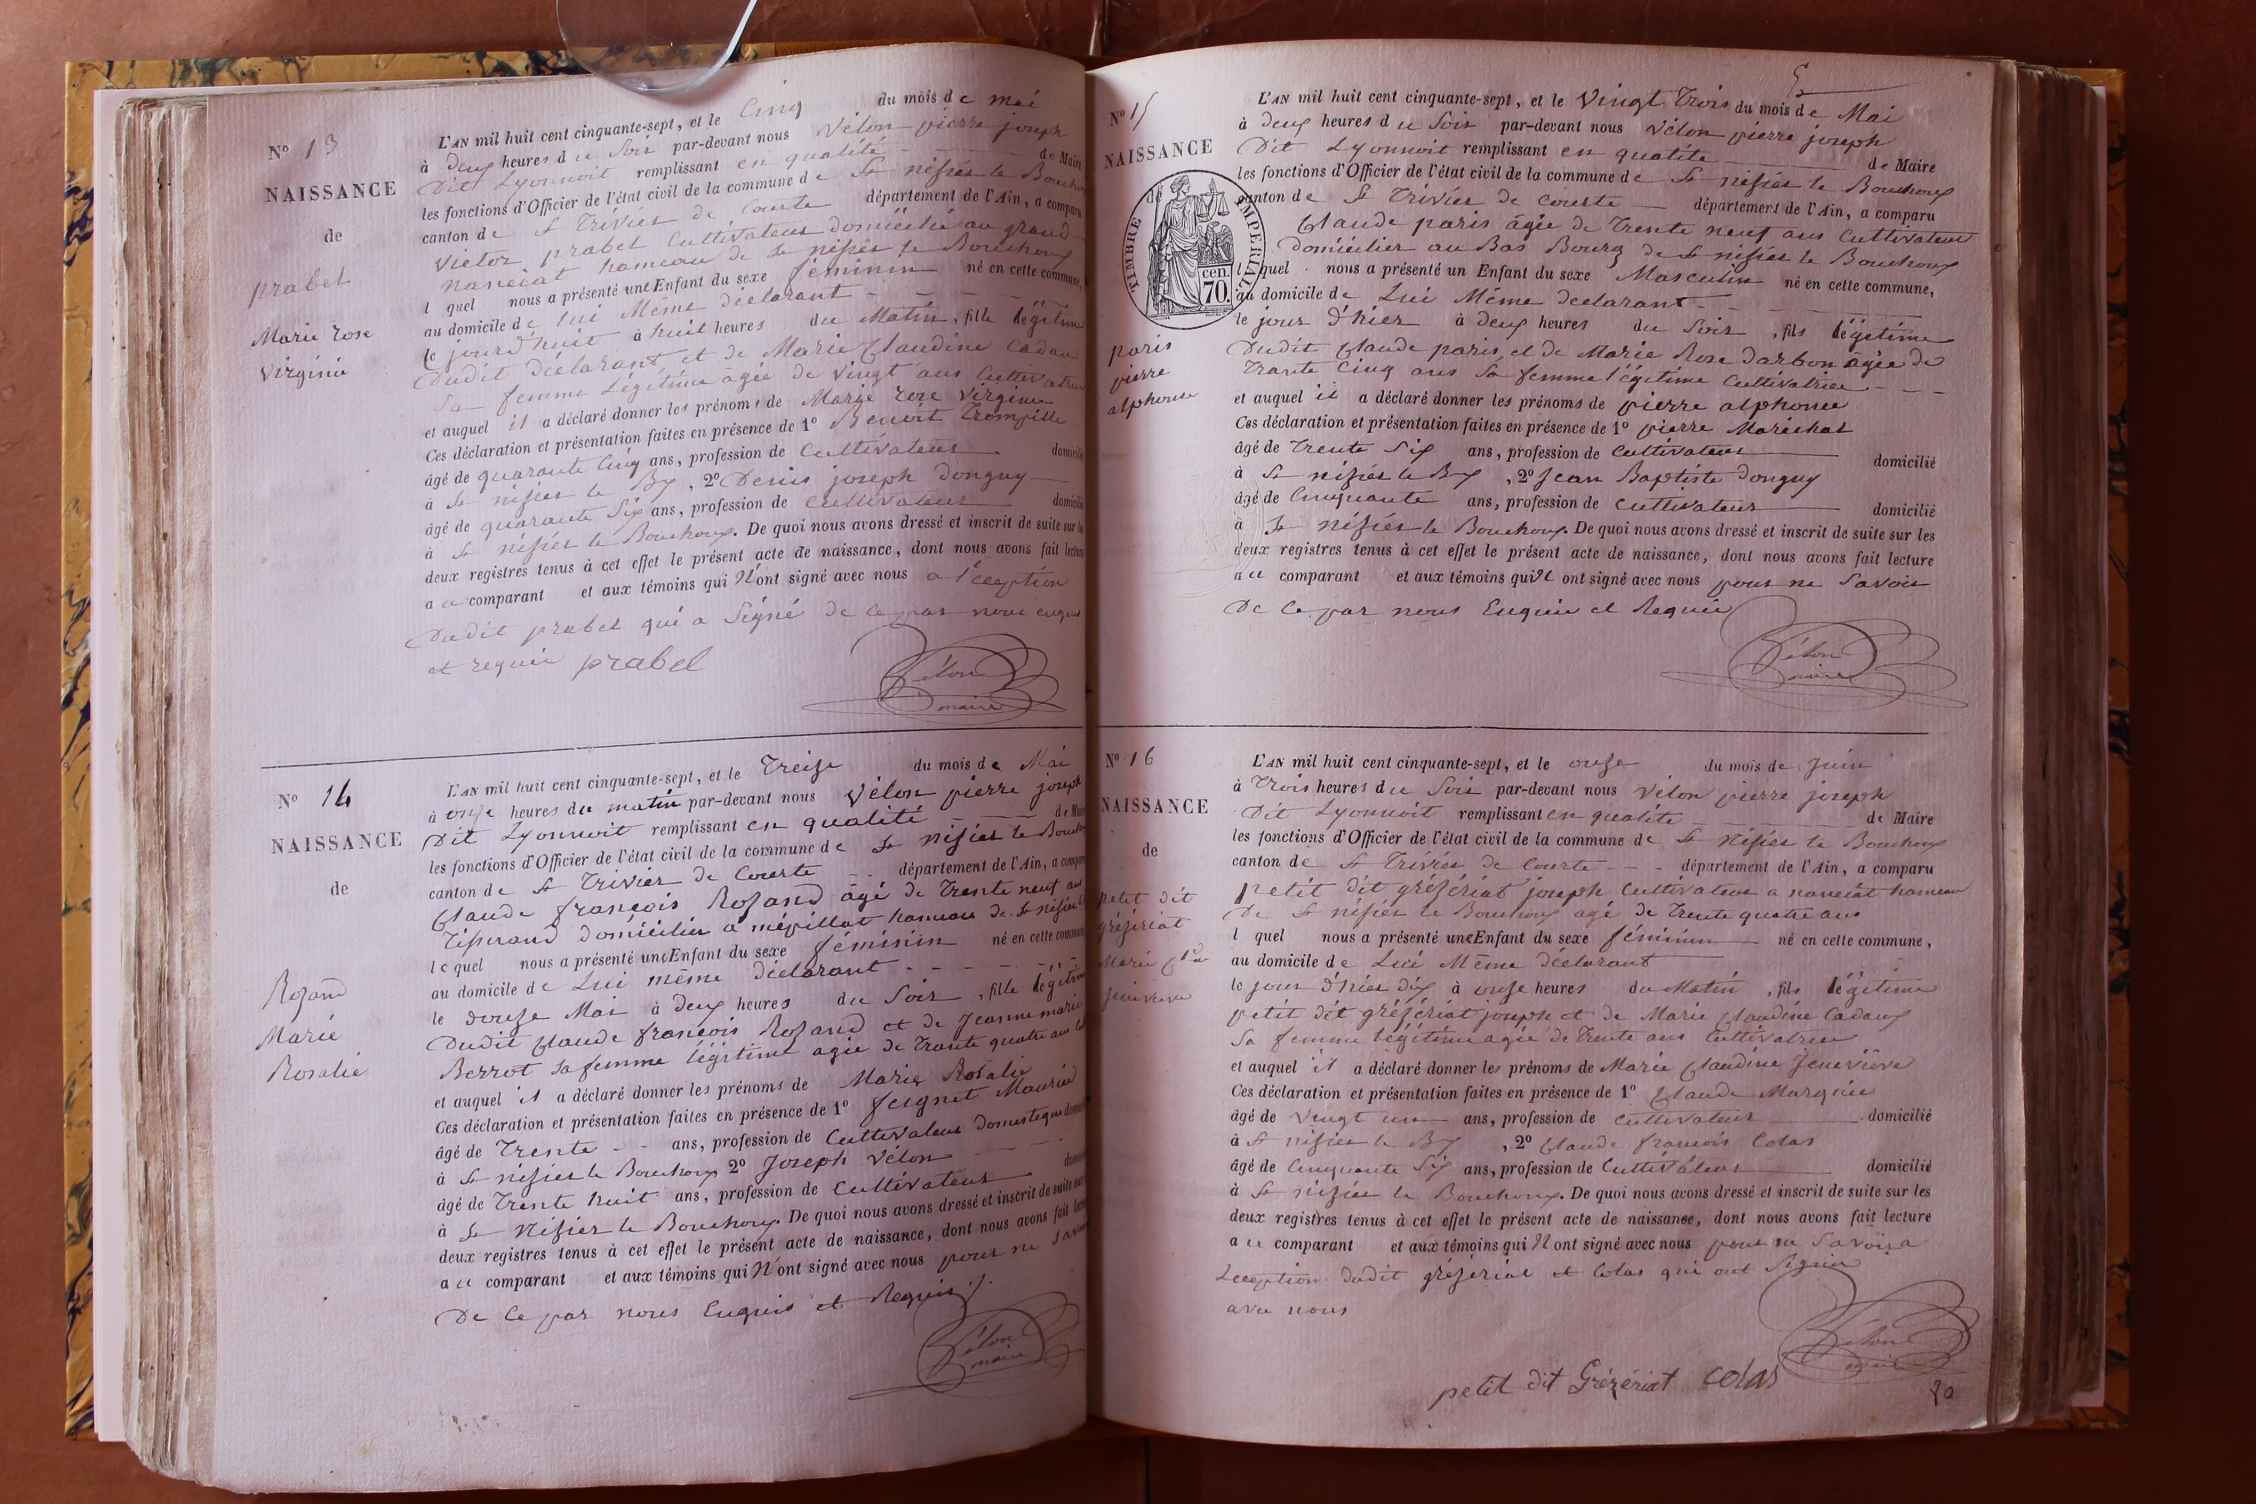 N° 13
NAISSANCE
de
prabel
Marie rose
virginie
L'AN mil huit cent cinquante-sept, et le Cinq du mois de mai
à deux heures du Soir par-devant nous Vélon pierre joseph
Dit Lyonnoit remplissant en qualité de Maire
les fonctions d'Officier de l'état civil de la commune de St nisiér le Bouchoux
canton de St Trivier de Courte département de l'Ain, a comparu
victor prabel Cultivateur domicilié au grand
naneiat hameau de St nisiér le Bouchoux
l quel nous a présenté une Enfant du sexe féminin né en cette commune,
au domicile de lui Même déclarant
le jourd'huit à huit heures du Matin, fille légitime
Dudit déclarant et de Marie Claudine Cadau
Sa femme Légitime âgée de vingt ans Cultivatrice
et auquel il a déclaré donner les prénoms de Marie rose Virginie
Ces déclaration et présentation faites en présence de 1° Benoit Trompille
âgé de quarante Cinq ans, profession de Cultivateur domicilié
à St nisier le Bx, 2° Denis joseph Donguy
âgé de quarante Six ans, profession de Cultivateur domicilié
à St nisiér le Bouchoux. De quoi nous avons dressé et inscrit de suite sur les
deux registres tenus à cet effet le présent acte de naissance, dont nous avons fait lecture
au comparant et aux témoins qui N'ont signé avec nous a l'éception
Dudit prabel qui a Signé de ce par nous enquis
et requis prabel
Vélon
maire
N° 14
NAISSANCE
de
Rozand
Marie
Rosalie
L'AN mil huit cent cinquante-sept, et le Treize du mois de Mai
à onze heures du matin par-devant nous Vélon pierre joseph
Dit Lyonnoit remplissant en qualité de Maire
les fonctions d'Officier de l'état civil de la commune de St nisier le Bouchoux
canton de St Trivier de Courte département de l'Ain, a comparu
Claude françois Rozand âgé de Trente neuf ans
Tisserand domicilier à mépillat hameau de St nisier le
lequel nous a présenté une Enfant du sexe féminin né en cette commune
au domicile de Lui même déclarant
le douze Mai à deux heures du Soir, fille légitime
Dudit Claude françois Rozand et de Jeanne marie
Berrot sa femme légitime agée de Trante quatre ans
et auquel il a déclaré donner les prénoms de Marie Rosalie
Ces déclaration et présentation faites en présence de 1° feignet Maurice
âgé de Trente ans, profession de Cultivateur Domestique domicilié
à St nisier le Bouchoux 2° Joseph Vélon
âgé de Trente huit ans, profession de Cultivateur domicilié
à St Nisier le Bouchoux. De quoi nous avons dressé et inscrit de suite sur les
deux registres tenus à cet effet le présent acte de naissance, dont nous avons fait lecture
au comparant et aux témoins qui N'ont signé avec nous pour ne savoir
De Ce par nous Enquis et Requis
Vélon
maire
5
N° 15
NAISSANCE
de
TIMBRE IMPERIAL
70. cen.
paris
pierre
alphonse
L'AN mil huit cent cinquante-sept, et le Vingt Trois du mois de Mai
à deux heures du Soir par-devant nous Vélon pierre joseph
Dit Lyonnoit remplissant en qualité de Maire
les fonctions d'Officier de l'état civil de la commune de St nisiér le Bouchoux
canton de St Trivier de Courte département de l'Ain, a comparu
Claude paris âgée de Trente neuf ans Cultivateur
domicilier au Bas Bourg de St nisier le Bouchoux
l quel nous a présenté un Enfant du sexe Masculin né en cette commune,
au domicile de Lui Même déclarant
le jour d'hier à deux heures du Soir, fils légitime
Dudit Claude paris, et de Marie Rose Darbon âgée de
Trante Cinq ans Sa femme légitime Cultivatrice
et auquel il a déclaré donner les prénoms de pierre alphonse
Ces déclaration et présentation faites en présence de 1° pierre Maréchal
âgé de Trente Six ans, profession de Cultivateur domicilié
à St nisiér le Bx, 2° Jean Baptiste Donguy
âgé de Cinquante ans, profession de Cultivateur domicilié
à St Nisiér le Bouchoux. De quoi nous avons dressé et inscrit de suite sur les
deux registres tenus à cet effet le présent acte de naissance, dont nous avons fait lecture
au comparant et aux témoins qui N ont signé avec nous pour ne Savoir
De Ce par nous Enquis et Requis
Vélon
maire
N° 16
NAISSANCE
de
petit dit
grézériat
Marie Cl.
jenevieve
L'AN mil huit cent cinquante-sept, et le onze du mois de Juin
à Trois heures du Soir par-devant nous Vélon pierre joseph
Dit Lyonnoit remplissant en qualité de Maire
les fonctions d'Officier de l'état civil de la commune de St Nisier le Bouchoux
canton de St Triviér de Courte département de l'Ain, a comparu
petit dit grézériat joseph Cultivateur a naneiat hameau
De St nisier le Bouchoux agé de Trente quatre ans
l quel nous a présenté une Enfant du sexe féminin né en cette commune,
au domicile de Lui Même déclarant
le jour d'hier dix à onze heures du Matin, fils légitime
petit dit grézériat joseph et de Marie Claudine Cadaux
Sa femme légitime agée de Trente ans Cultivatrice
et auquel il a déclaré donner les prénoms de Marie Claudine Jenevieve
Ces déclaration et présentation faites en présence de 1° Claude Marguin
âgé de vingt un ans, profession de Cultivateur domicilié
à St nisier le Bx, 2° Claude françois Colas
âgé de Cinquante Six ans, profession de Cultivateur domicilié
à St nisier le Bouchoux. De quoi nous avons dressé et inscrit de suite sur les
deux registres tenus à cet effet le présent acte de naissance, dont nous avons fait lecture
au comparant et aux témoins qui N ont signé avec nous pour ne Savoir a
Leception dudit grézériat et Colas qui ont Signé
avec nous
Vélon
maire
petit dit Grézériat Colas